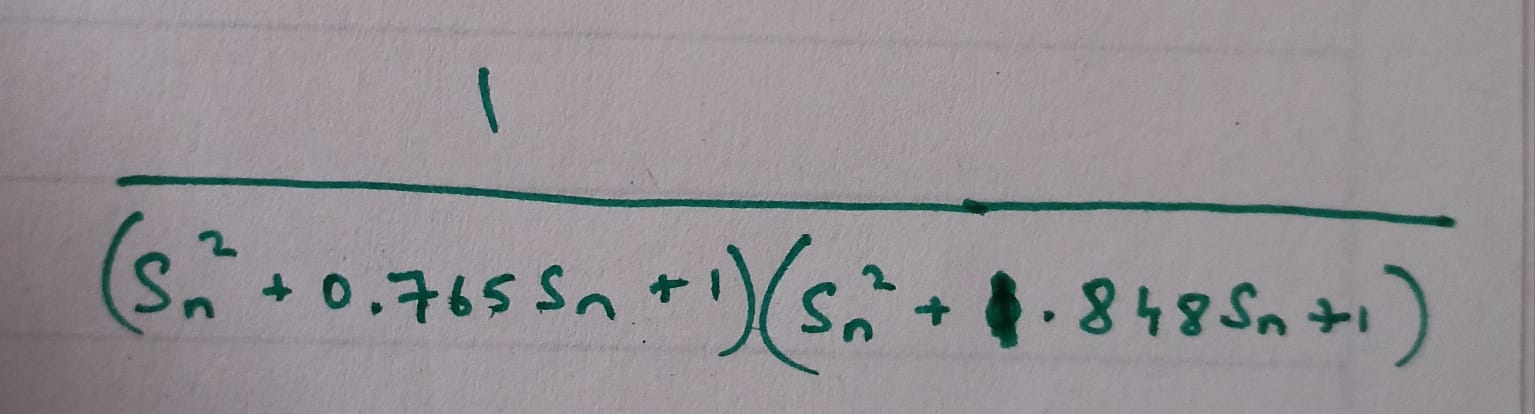 1
(Sn² + 0.765 Sn + 1)(Sn² + 1.848 Sn + 1)